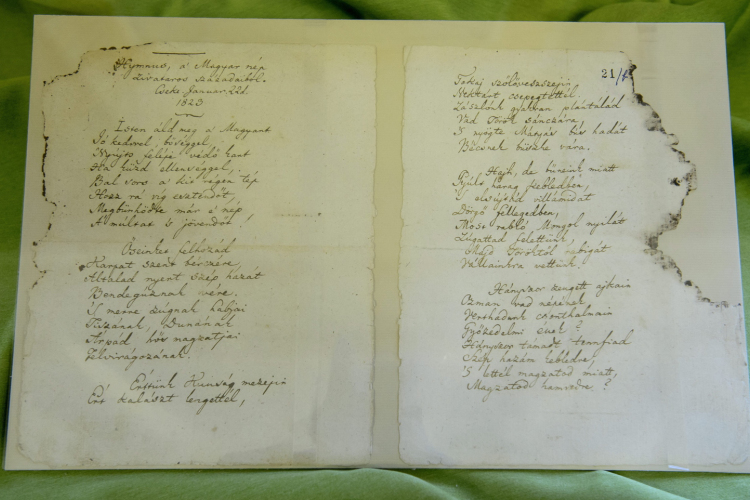 Hymnus, a' Magyar nép
zivataros századaiból.
Cseke Januar. 22d.
1823
Isten áldd meg a' Magyart
Jó kedvvel, bőséggel,
Nyújts feléje védő kart
Ha küzd ellenséggel;
Bal sors a' kit régen tép
Hozz rá víg esztendőt,
Megbünhödte már e' nép
A' multat 's jövendőt!
Őseinket felhozád
Kárpát szent bérczére,
Általad nyert szép hazát
Bendegúznak vére.
'S merre zúgnak habjai
Tiszának, Dunának
Árpád hős magzatjai
Felvirágozának.
Értünk Kunság mezejin
Ért kalászt lengettél,
21
Tokaj szőlővesszejin
Nektárt csepegtettél.
Zászlónk gyakran plántálád
Vad Török sánczára,
'S nyögte Mátyás bús hadát
Bécsnek büszke vára.
Hajh, de bűneink miatt
Gyúlt harag kebledben,
'S elsújtád villámidat
Dörgő fellegedben,
Most rabló Mongol nyilát
Zúgattad felettünk,
Majd Töröktől rabigát
Vállainkra vettünk.
Hányszor zengett ajkain
Ozman vad népének
Vert hadunk csonthalmain
Győzedelmi ének?
Hányszor támadt tenfiad
Szép hazám kebledre,
'S lettél magzatod miatt,
Magzatod hamvedre?